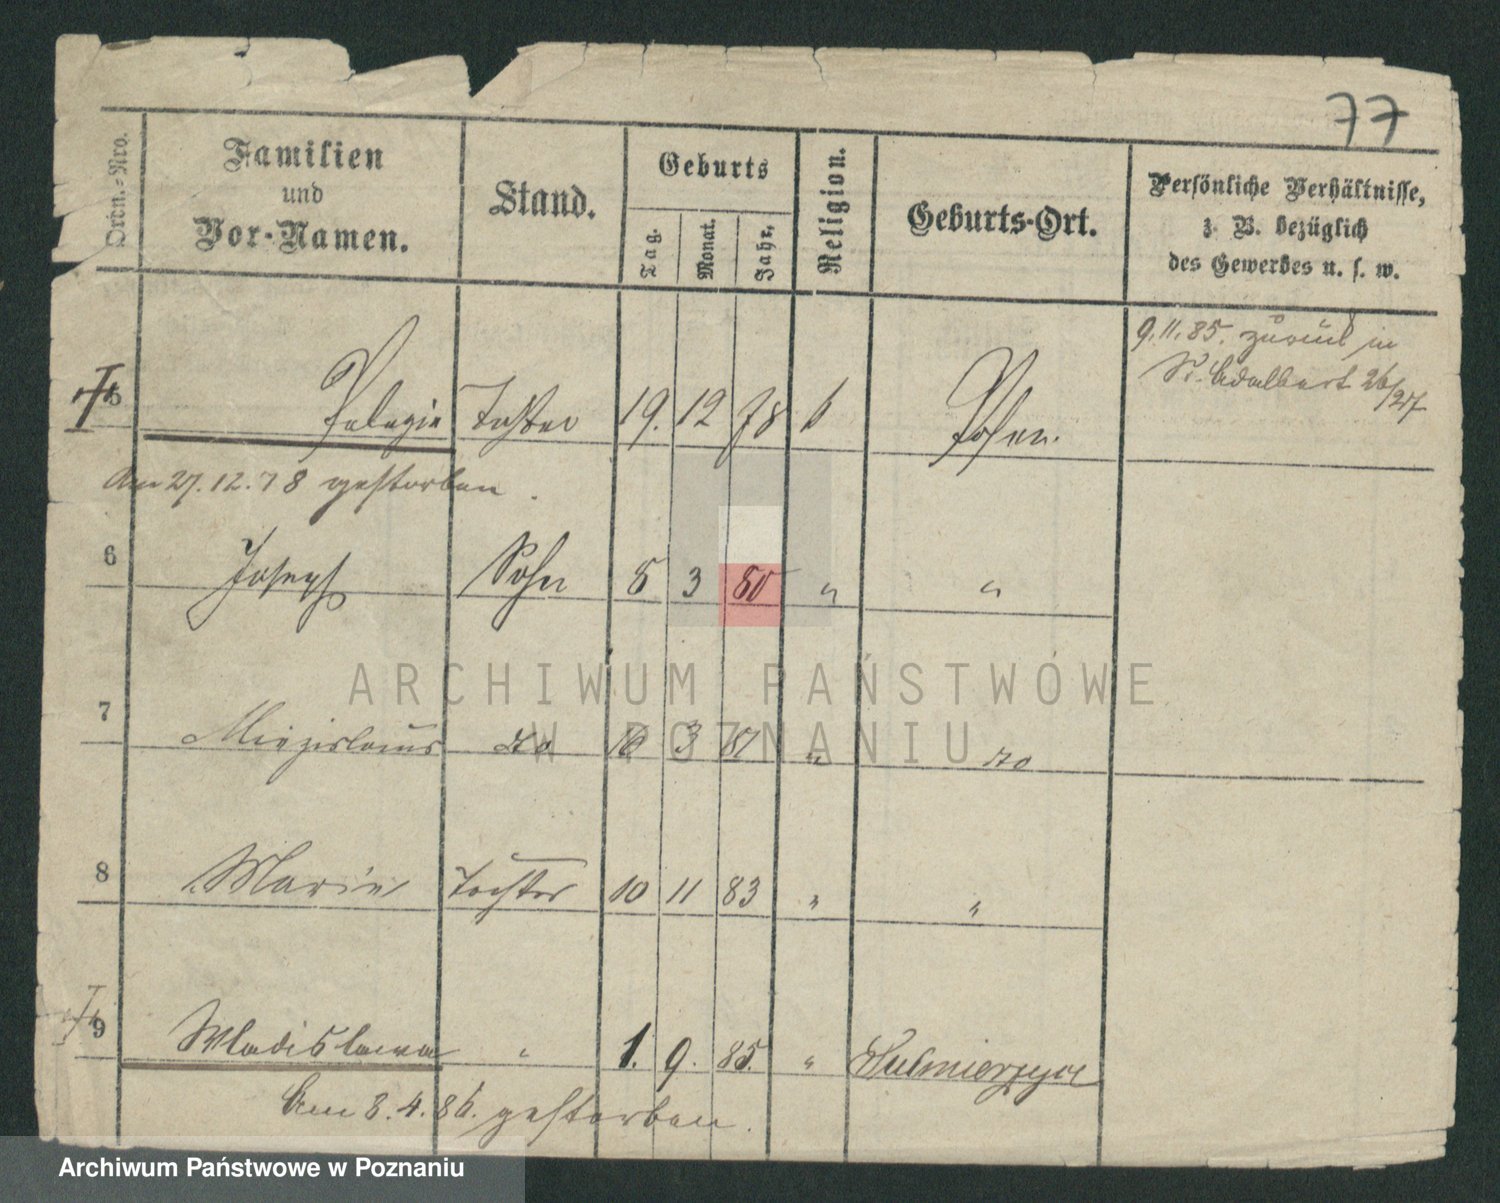 77
Ordn.-Nro.
Familien
und
Vor-Namen.
Stand.
Geburts
Tag.
Monat.
Jahr,
Religion.
Geburts-Ort.
Persönliche Verhältnisse,
z. B. bezüglich
des Gewerbes u. s. w.
9.11.85. zurück in
St. Adalbert 26/27
5 Pelagie Tochter 19. 12 78 k Posen.
Am 27.12.78 gestorben.
6 Joseph Sohn 5 3 80 " "
ARCHIWUM PAŃSTWOWE
W POZNANIU
7 Miezislaus do 16 3 81 " do
8 Marie Tochter 10 11 83 " "
9 Wladislawa " 1. 9. 85. " Sulmierzyce
Am 8.4.86. gestorben.
Archiwum Państwowe w Poznaniu